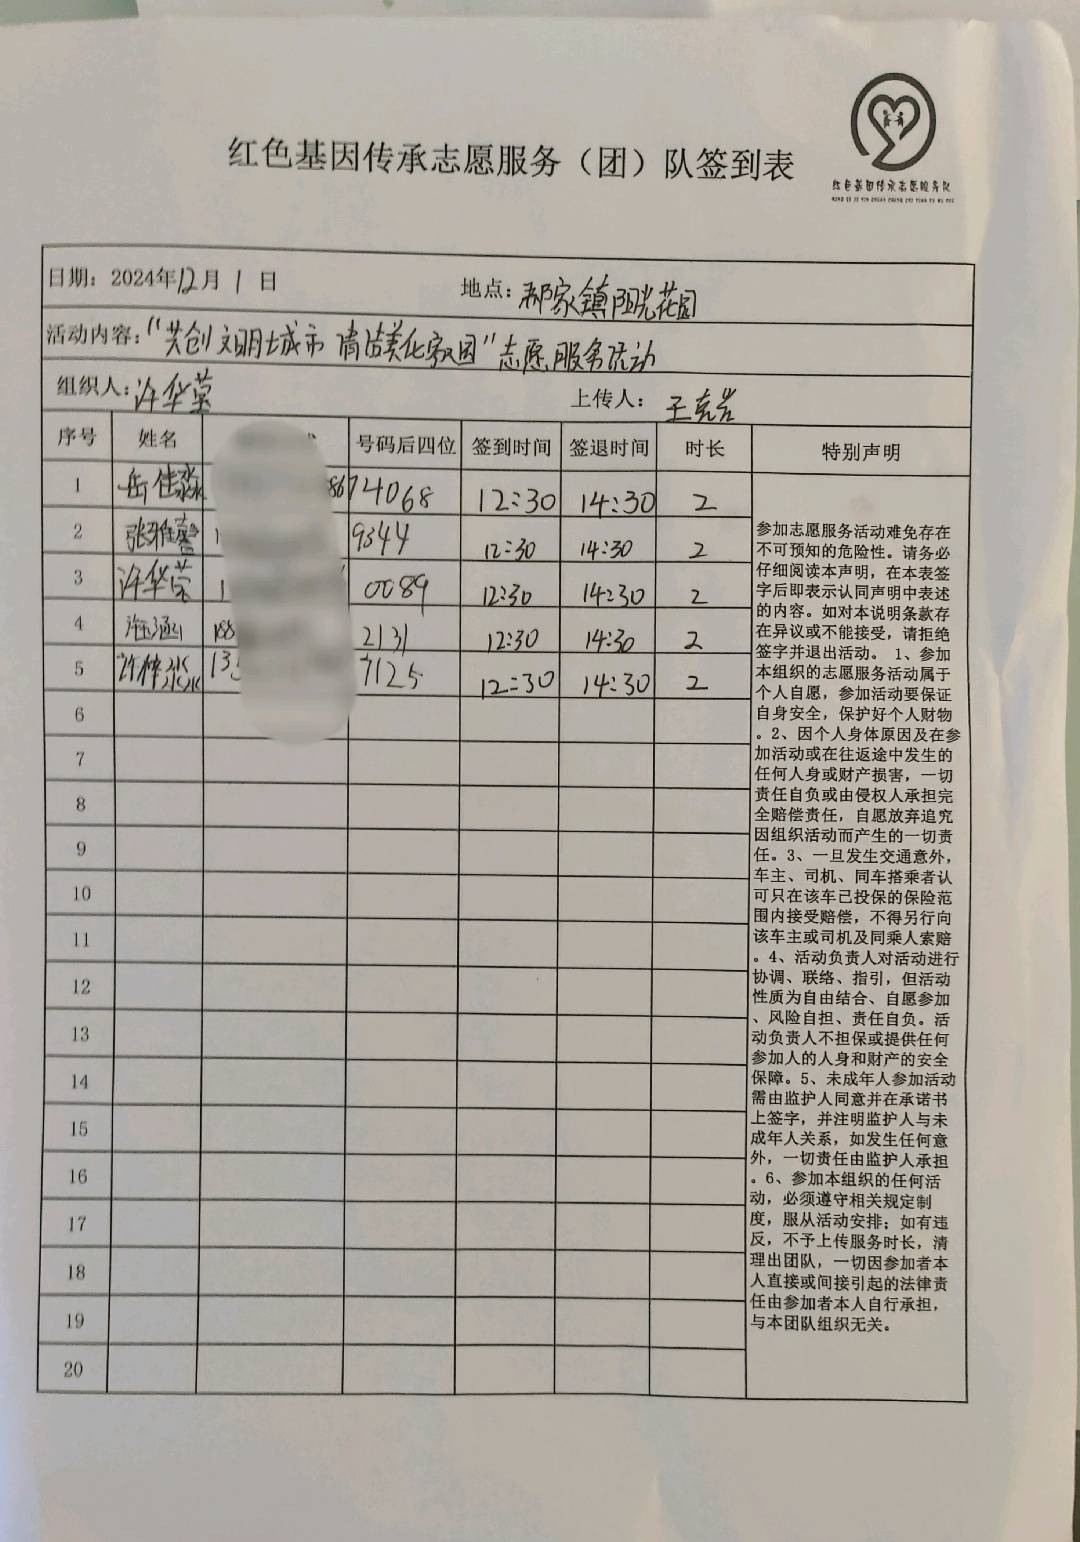 红色基因传承志愿服务（团）队签到表
红色基因传承志愿服务队
日期：2024年12月1日 地点：祁家镇阳光花园
活动内容：“共创文明城市 清洁美化家园”志愿服务活动
组织人：许华荣 上传人：王克岩
序号 姓名 号码后四位 签到时间 签退时间 时长 特别声明
1 岳佳淼 8674068 12:30 14:30 2
2 张雅馨 1 9344 12:30 14:30 2
3 许华荣 1 0089 12:30 14:30 2
4 汪涵 188 2131 12:30 14:30 2
5 许梓淼 135 7125 12:30 14:30 2
6
7
8
9
10
11
12
13
14
15
16
17
18
19
20
参加志愿服务活动难免存在
不可预知的危险性。请务必
仔细阅读本声明，在本表签
字后即表示认同声明中表述
的内容。如对本说明条款存
在异议或不能接受，请拒绝
签字并退出活动。 1、参加
本组织的志愿服务活动属于
个人自愿，参加活动要保证
自身安全，保护好个人财物
。2、因个人身体原因及在参
加活动或在往返途中发生的
任何人身或财产损害，一切
责任自负或由侵权人承担完
全赔偿责任，自愿放弃追究
因组织活动而产生的一切责
任。3、一旦发生交通意外，
车主、司机、同车搭乘者认
可只在该车已投保的保险范
围内接受赔偿，不得另行向
该车主或司机及同乘人索赔
。4、活动负责人对活动进行
协调、联络、指引，但活动
性质为自由结合、自愿参加
、风险自担、责任自负。活
动负责人不担保或提供任何
参加人的人身和财产的安全
保障。5、未成年人参加活动
需由监护人同意并在承诺书
上签字，并注明监护人与未
成年人关系，如发生任何意
外，一切责任由监护人承担
。6、参加本组织的任何活
动，必须遵守相关规定制
度，服从活动安排；如有违
反，不予上传服务时长，清
理出团队，一切因参加者本
人直接或间接引起的法律责
任由参加者本人自行承担，
与本团队组织无关。